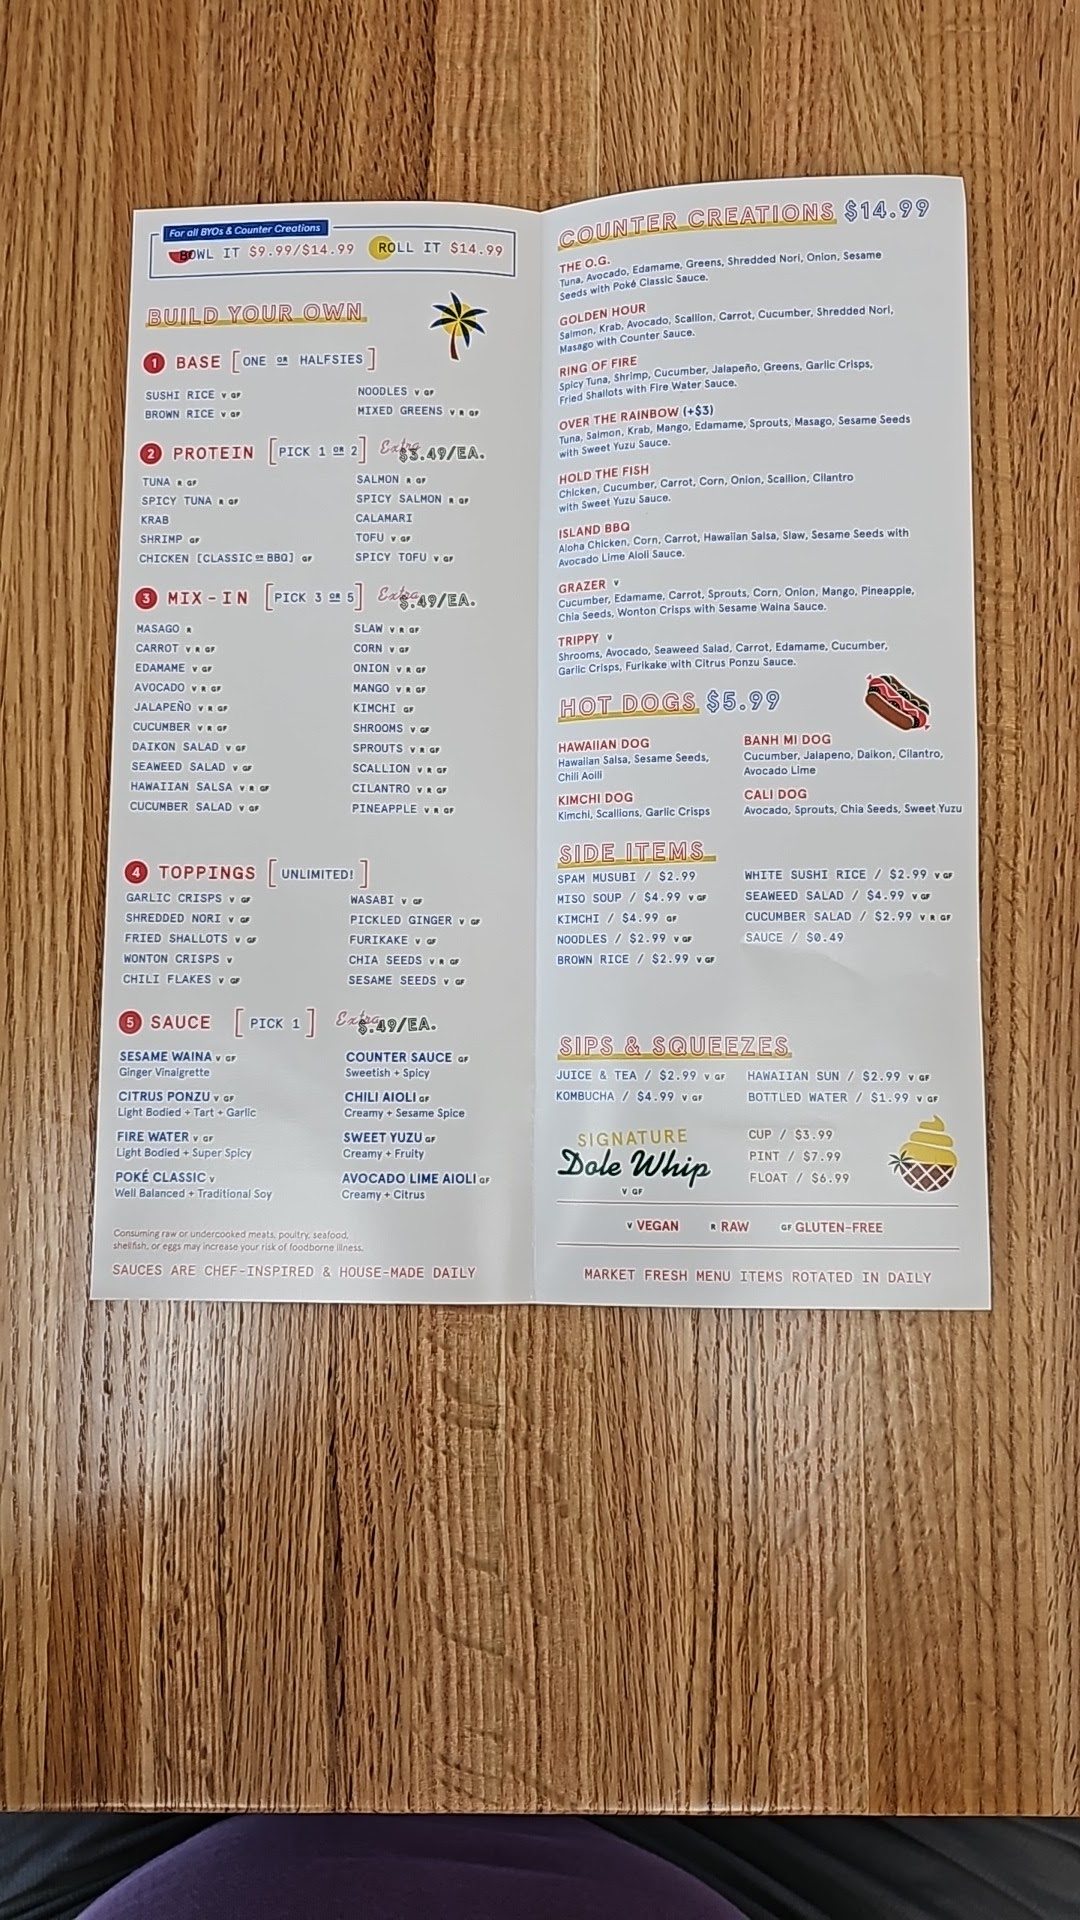 For all BYOs & Counter Creations
BOWL IT $9.99/$14.99 ROLL IT $14.99
BUILD YOUR OWN
1 BASE [ONE OR HALFSIES]
SUSHI RICE V GF
BROWN RICE V GF
NOODLES V GF
MIXED GREENS V R GF
2 PROTEIN [PICK 1 OR 2] Extra $3.49/EA.
TUNA R GF
SPICY TUNA R GF
KRAB
SHRIMP GF
CHICKEN [CLASSIC OR BBQ] GF
SALMON R GF
SPICY SALMON R GF
CALAMARI
TOFU V GF
SPICY TOFU V GF
3 MIX-IN [PICK 3 OR 5] Extra $.49/EA.
MASAGO R
CARROT V R GF
EDAMAME V GF
AVOCADO V R GF
JALAPEÑO V R GF
CUCUMBER V R GF
DAIKON SALAD V GF
SEAWEED SALAD V GF
HAWAIIAN SALSA V R GF
CUCUMBER SALAD V GF
SLAW V R GF
CORN V GF
ONION V R GF
MANGO V R GF
KIMCHI GF
SHROOMS V GF
SPROUTS V R GF
SCALLION V R GF
CILANTRO V R GF
PINEAPPLE V R GF
4 TOPPINGS [UNLIMITED!]
GARLIC CRISPS V GF
SHREDDED NORI V GF
FRIED SHALLOTS V GF
WONTON CRISPS V
CHILI FLAKES V GF
WASABI V GF
PICKLED GINGER V GF
FURIKAKE V GF
CHIA SEEDS V R GF
SESAME SEEDS V GF
5 SAUCE [PICK 1] Extra $.49/EA.
SESAME WAINA V GF
Ginger Vinaigrette
CITRUS PONZU V GF
Light Bodied + Tart + Garlic
FIRE WATER V GF
Light Bodied + Super Spicy
POKÉ CLASSIC V
Well Balanced + Traditional Soy
COUNTER SAUCE GF
Sweetish + Spicy
CHILI AIOLI GF
Creamy + Sesame Spice
SWEET YUZU GF
Creamy + Fruity
AVOCADO LIME AIOLI GF
Creamy + Citrus
Consuming raw or undercooked meats, poultry, seafood,
shellfish, or eggs may increase your risk of foodborne illness.
SAUCES ARE CHEF-INSPIRED & HOUSE-MADE DAILY
COUNTER CREATIONS $14.99
THE O.G.
Tuna, Avocado, Edamame, Greens, Shredded Nori, Onion, Sesame
Seeds with Poké Classic Sauce.
GOLDEN HOUR
Salmon, Krab, Avocado, Scallion, Carrot, Cucumber, Shredded Nori,
Masago with Counter Sauce.
RING OF FIRE
Spicy Tuna, Shrimp, Cucumber, Jalapeño, Greens, Garlic Crisps,
Fried Shallots with Fire Water Sauce.
OVER THE RAINBOW (+$3)
Tuna, Salmon, Krab, Mango, Edamame, Sprouts, Masago, Sesame Seeds
with Sweet Yuzu Sauce.
HOLD THE FISH
Chicken, Cucumber, Carrot, Corn, Onion, Scallion, Cilantro
with Sweet Yuzu Sauce.
ISLAND BBQ
Aloha Chicken, Corn, Carrot, Hawaiian Salsa, Slaw, Sesame Seeds with
Avocado Lime Aioli Sauce.
GRAZER V
Cucumber, Edamame, Carrot, Sprouts, Corn, Onion, Mango, Pineapple,
Chia Seeds, Wonton Crisps with Sesame Waina Sauce.
TRIPPY V
Shrooms, Avocado, Seaweed Salad, Carrot, Edamame, Cucumber,
Garlic Crisps, Furikake with Citrus Ponzu Sauce.
HOT DOGS $5.99
HAWAIIAN DOG
Hawaiian Salsa, Sesame Seeds,
Chili Aoili
KIMCHI DOG
Kimchi, Scallions, Garlic Crisps
BANH MI DOG
Cucumber, Jalapeno, Daikon, Cilantro,
Avocado Lime
CALI DOG
Avocado, Sprouts, Chia Seeds, Sweet Yuzu
SIDE ITEMS
SPAM MUSUBI / $2.99
MISO SOUP / $4.99 V GF
KIMCHI / $4.99 GF
NOODLES / $2.99 V GF
BROWN RICE / $2.99 V GF
WHITE SUSHI RICE / $2.99 V GF
SEAWEED SALAD / $4.99 V GF
CUCUMBER SALAD / $2.99 V R GF
SAUCE / $0.49
SIPS & SQUEEZES
JUICE & TEA / $2.99 V GF
KOMBUCHA / $4.99 V GF
HAWAIIAN SUN / $2.99 V GF
BOTTLED WATER / $1.99 V GF
SIGNATURE
Dole Whip
V GF
CUP / $3.99
PINT / $7.99
FLOAT / $6.99
V VEGAN R RAW GF GLUTEN-FREE
MARKET FRESH MENU ITEMS ROTATED IN DAILY